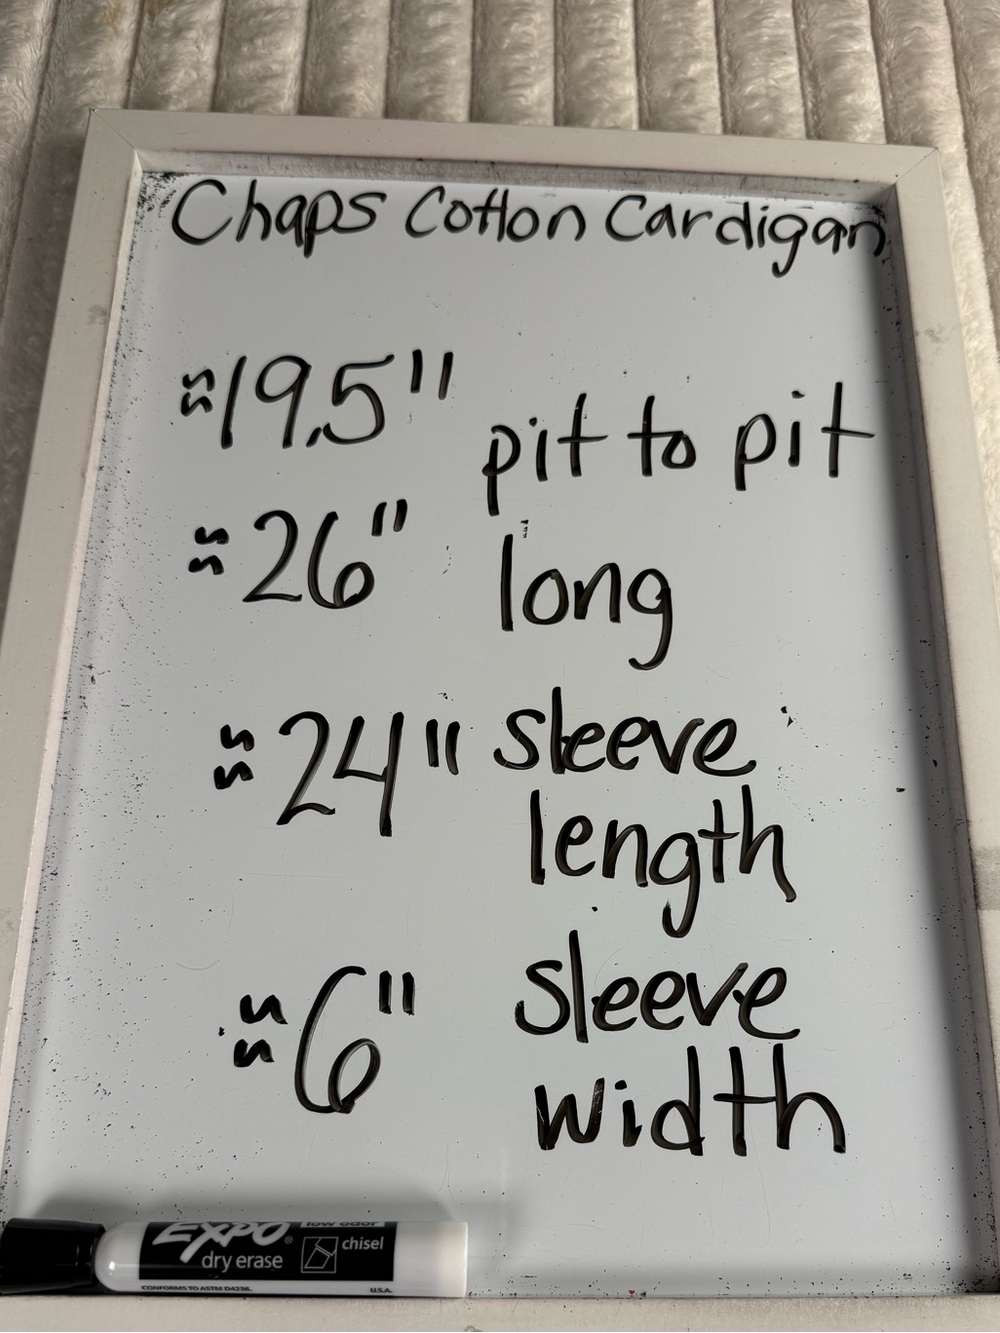 Chaps Cotton Cardigan
≈19.5" pit to pit
≈26" long
≈24" sleeve
length
≈6" sleeve
width
EXPO® low odor
dry erase chisel
CONFORMS TO ASTM D4236. U.S.A.